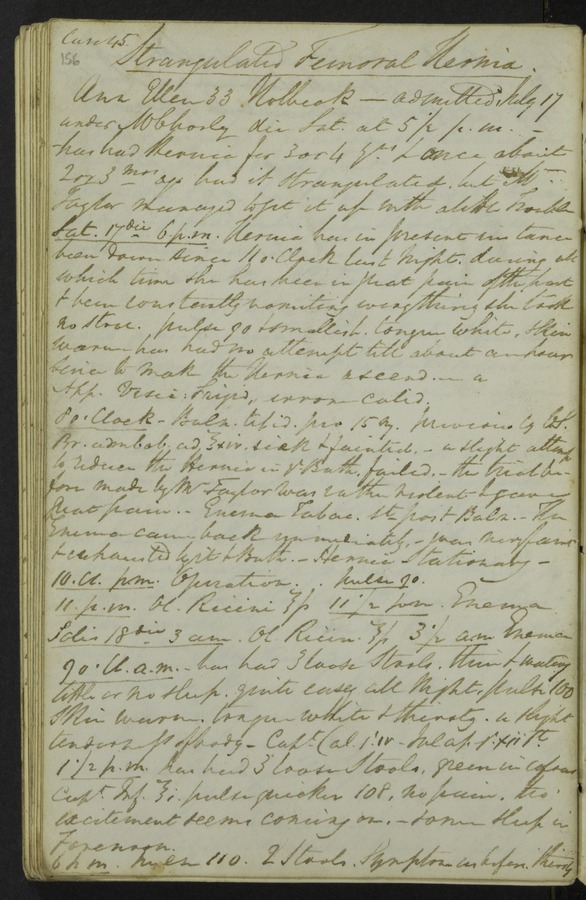 Case 45.
156
Strangulated Femoral Hernia.
Ann Ellen 33 Holbeck — admitted July 17
under Mr Chorley die Sat. at 5½ p.m. —
has had Hernia for 3 or 4 yrs & once about
2 or 3 mos ago had it strangulated, but Mr
Taylor managed to get it up with a little trouble
Sat. 17 die 6 p.m. Hernia has in present instance
been down since 11 o'Clock last night, during all
which time she has been in great pain of the part
& been constantly vomiting everything she took
no stool. pulse 90 & small & tongue white, skin
warm has had no attempt till about an hour
since to make the Hernia ascend
App. Vesic: Frigid,
8 o'Clock - Baln. tepid. pro 15 m. previous
Br. ad ℥xiv. sick & fainted. - a slight attempt
to reduce the Hernia in ye Bath failed. - the trial be-
fore made by Mr Taylor was rather violent & gave
great pain. - Enema Tabac. st. post Baln. - The
Enema came back immediately, - was very faint
& exhausted by it & Bath - Hernia Stationary -
10. Cl. p.m. Operation. pulse 90.
11. p.m. Ol. Ricini ℥ss 11½ p.m. Enema
Solis 18 die 3 am. Ol. Ricin. ℥ss 3½ a.m Enema
9 o'Cl. a.m. - has had 3 loose Stools, thin & watery
little or no sleep. quite easy all Night, pulse 100
Skin warm. tongue white & thirsty. a slight
tenderness of body - Capt. Cal.
1½ p.m. has had 3 loose Stools, green in colour
Capt. pulse quicker 108, no pain, tho'
excitement seems coming on. - some sleep in
Forenoon.
6 p.m. pulse 110. 2 Stools. Symptoms as before. thirsty